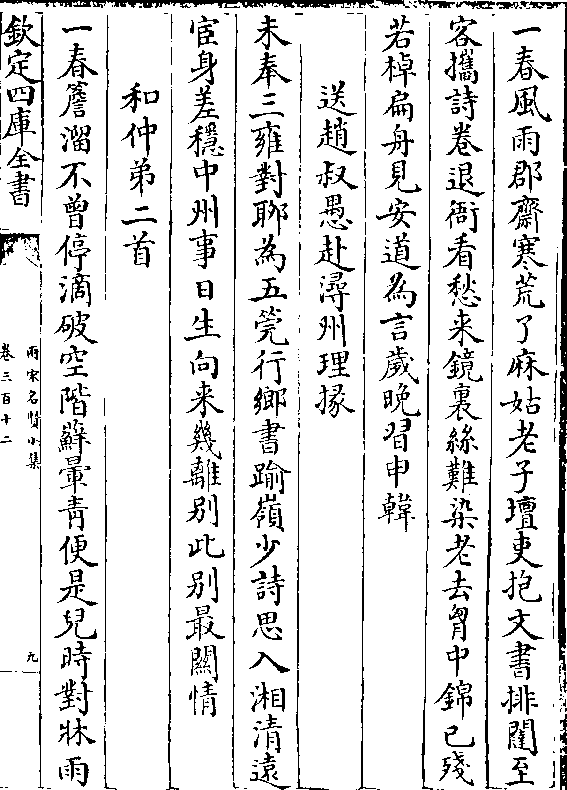 一春風雨郡齋寒荒了麻姑老子壇吏抱文書排闥至
客攜詩卷退衙看愁来鏡裏絲難染老去胷中錦已殘
若棹扁舟見安道為言歲晚習申韓
送趙叔愚赴潯州理掾
未奉三雍對聊為五筦行鄉書踰嶺少詩思入湘清遠
宦身差穩中州事日生向来幾離别此别最闗情
和仲弟二首
一春簷溜不曾停滴破空階蘚暈青便是兒時對牀雨
欽定四庫全書
兩宋名賢小集
卷三百十二
九